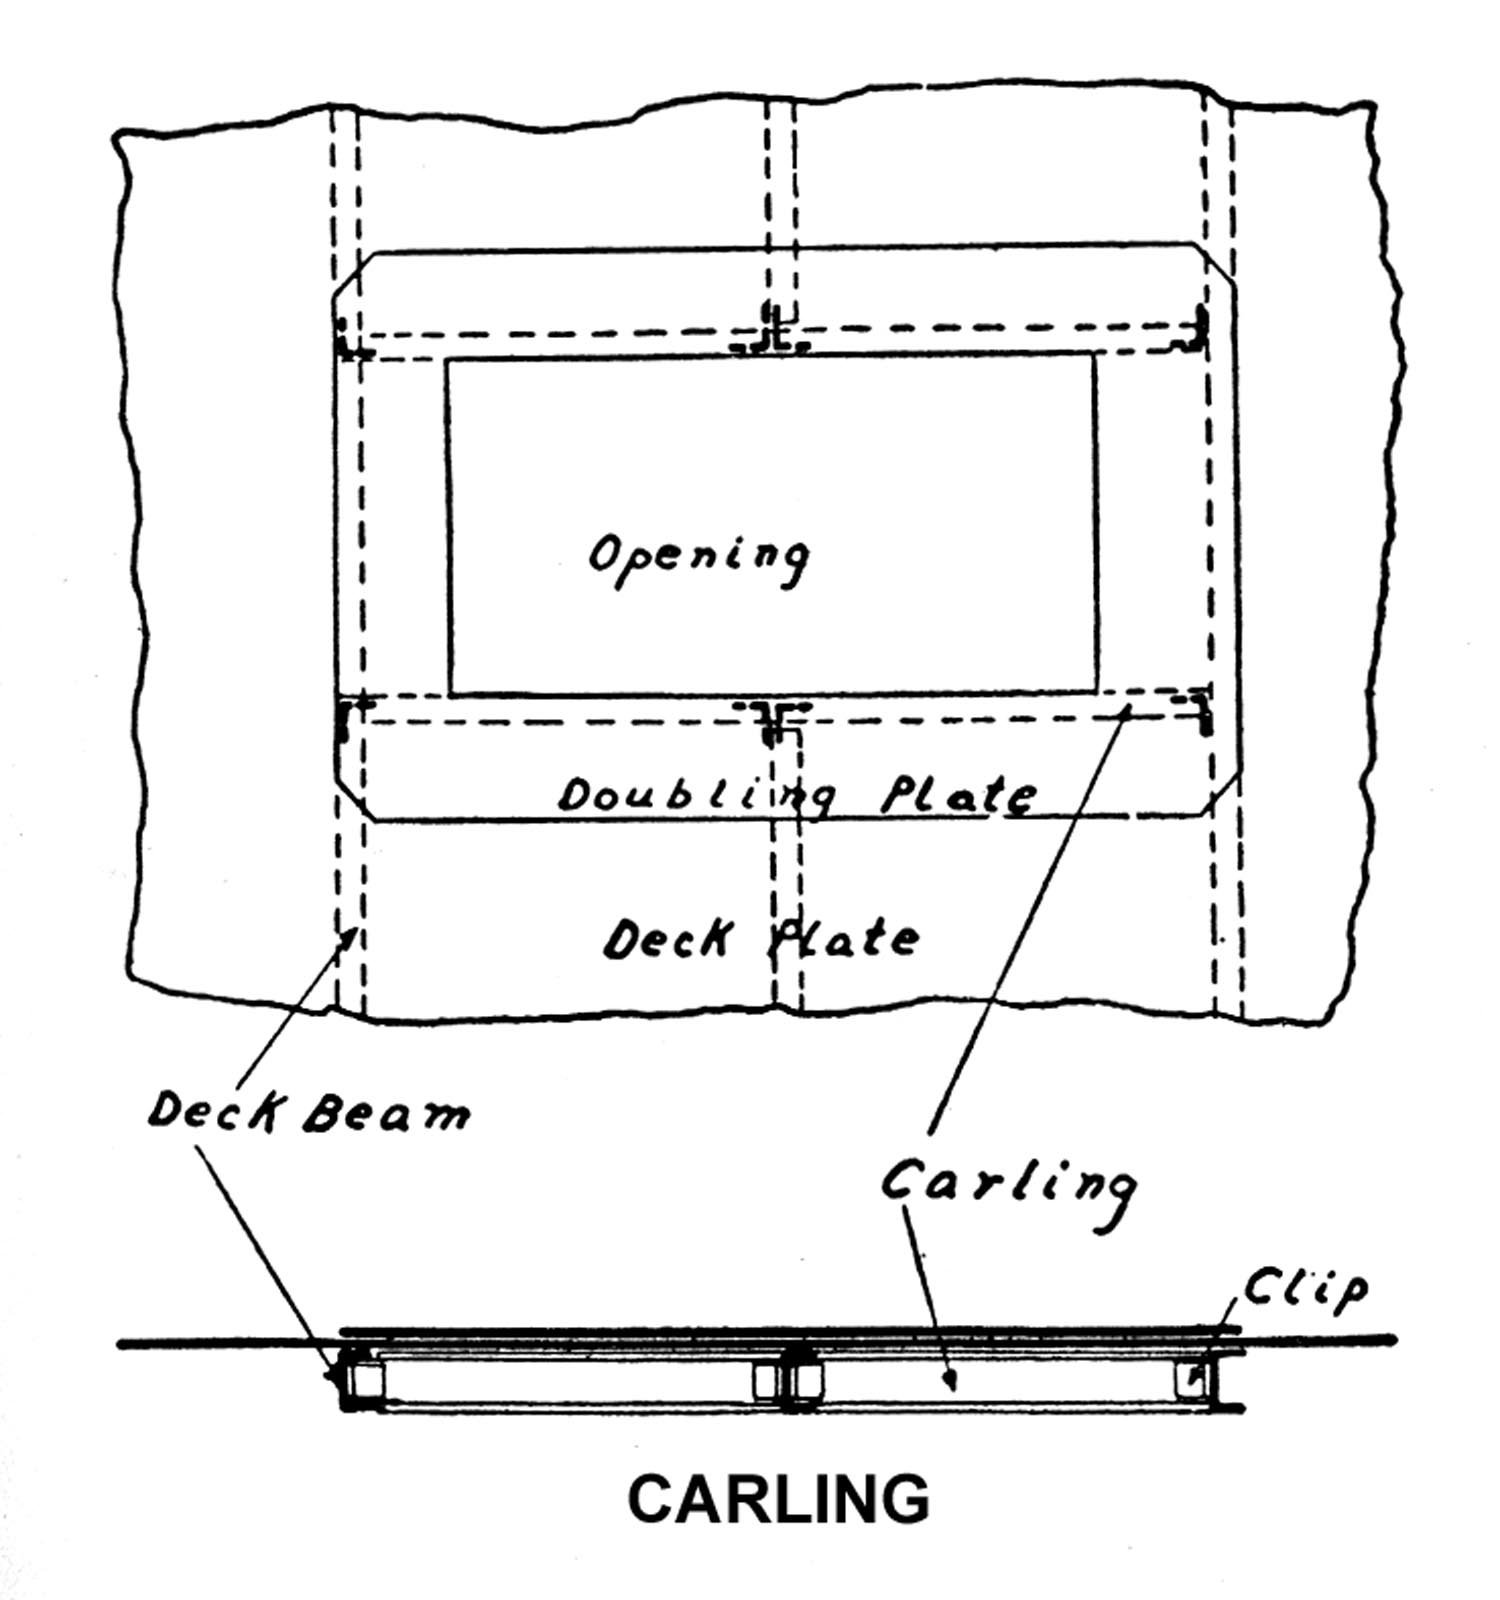 Opening
Doubling Plate
Deck Plate
Deck Beam
Carling
Clip
CARLING